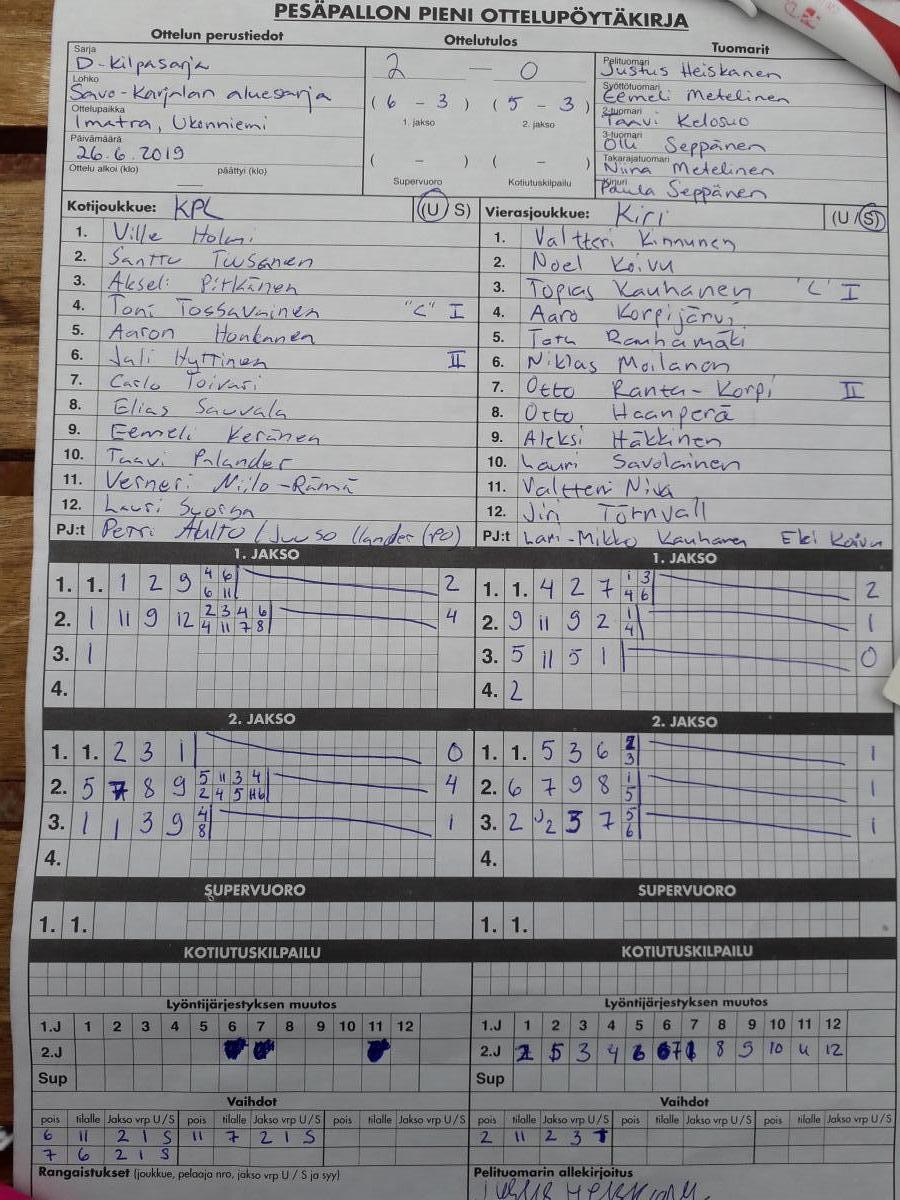 PESÄPALLON PIENI OTTELUPÖYTÄKIRJA
Ottelun perustiedot
Sarja
D-Kilpasarja
Lohko
Savo-Karjalan aluesarja
Ottelupaikka
Imatra, Ukonniemi
Päivämäärä
26.6.2019
Ottelu alkoi (klo) päättyi (klo)
Ottelutulos
2 — 0
(6 - 3) (5 - 3)
1. jakso 2. jakso
( - ) ( - )
Supervuoro Kotiutuskilpailu
Tuomarit
Pelituomari
Justus Heiskanen
Syöttötuomari
Eemeli Metelinen
2-tuomari
Taavi Kelosuo
3-tuomari
Olli Seppänen
Takarajatuomari
Niina Metelinen
Kirjuri
Paula Seppänen
Kotijoukkue: KPL (U/S)
1. Ville Holmi
2. Santtu Tuusanen
3. Akseli Pitkänen
4. Toni Tossavainen "C" I
5. Aaron Honkanen
6. Jali Hyttinen II
7. Carlo Toivari
8. Elias Sauvala
9. Eemeli Keränen
10. Taavi Palander
11. Verneri Niilo-Rämä
12. Lauri
PJ:t Petri Aulto / Juuso Ilander (PO)
Vierasjoukkue: Kiri (U/S)
1. Valtteri Kinnunen
2. Noel Koivu
3. Topias Kauhanen "C" I
4. Aaro Korpijärvi
5. Rauhamäki
6. Niklas Moilanen
7. Otto Ranta-Korpi II
8. Otto Haanperä
9. Aleksi Häkkinen
10. Lauri Savolainen
11. Valtteri Nivä
12. Jiri Törnvall
PJ:t Lari-Mikko Kauhanen Eki Koivu
1. JAKSO
1. 1. 1 2 9 4 6 2
6 11
2. 1 11 9 12 2 3 4 6 4
4 11 7 8
3. 1
4.
1. JAKSO
1. 1. 4 2 7 1 3 2
4 6
2. 9 11 9 2 1 1
4
3. 5 11 5 1 0
4. 2
2. JAKSO
1. 1. 2 3 1 0
2. 5 7 8 9 5 11 3 4 4
2 4 5 6
3. 1 1 3 9 4 1
8
4.
2. JAKSO
1. 1. 5 3 6 2 1
3
2. 6 7 9 8 1 1
5
3. 2 2 3 7 5 1
6
4.
SUPERVUORO
1. 1.
SUPERVUORO
1. 1.
KOTIUTUSKILPAILU
KOTIUTUSKILPAILU
Lyöntijärjestyksen muutos
1.J 1 2 3 4 5 6 7 8 9 10 11 12
2.J
Sup
Lyöntijärjestyksen muutos
1.J 1 2 3 4 5 6 7 8 9 10 11 12
2.J 5 3 4 6 8 9 10 11 12
Sup
Vaihdot
pois tilalle Jakso vrp U/S pois tilalle Jakso vrp U/S pois tilalle Jakso vrp U/S
6 11 2 1 S 11 7 2 1 S
7 6 2 1 S
Vaihdot
pois tilalle Jakso vrp U/S pois tilalle Jakso vrp U/S pois tilalle Jakso vrp U/S
2 11 2 3
Rangaistukset (joukkue, pelaaja nro, jakso vrp U / S ja syy)
Pelituomarin allekirjoitus